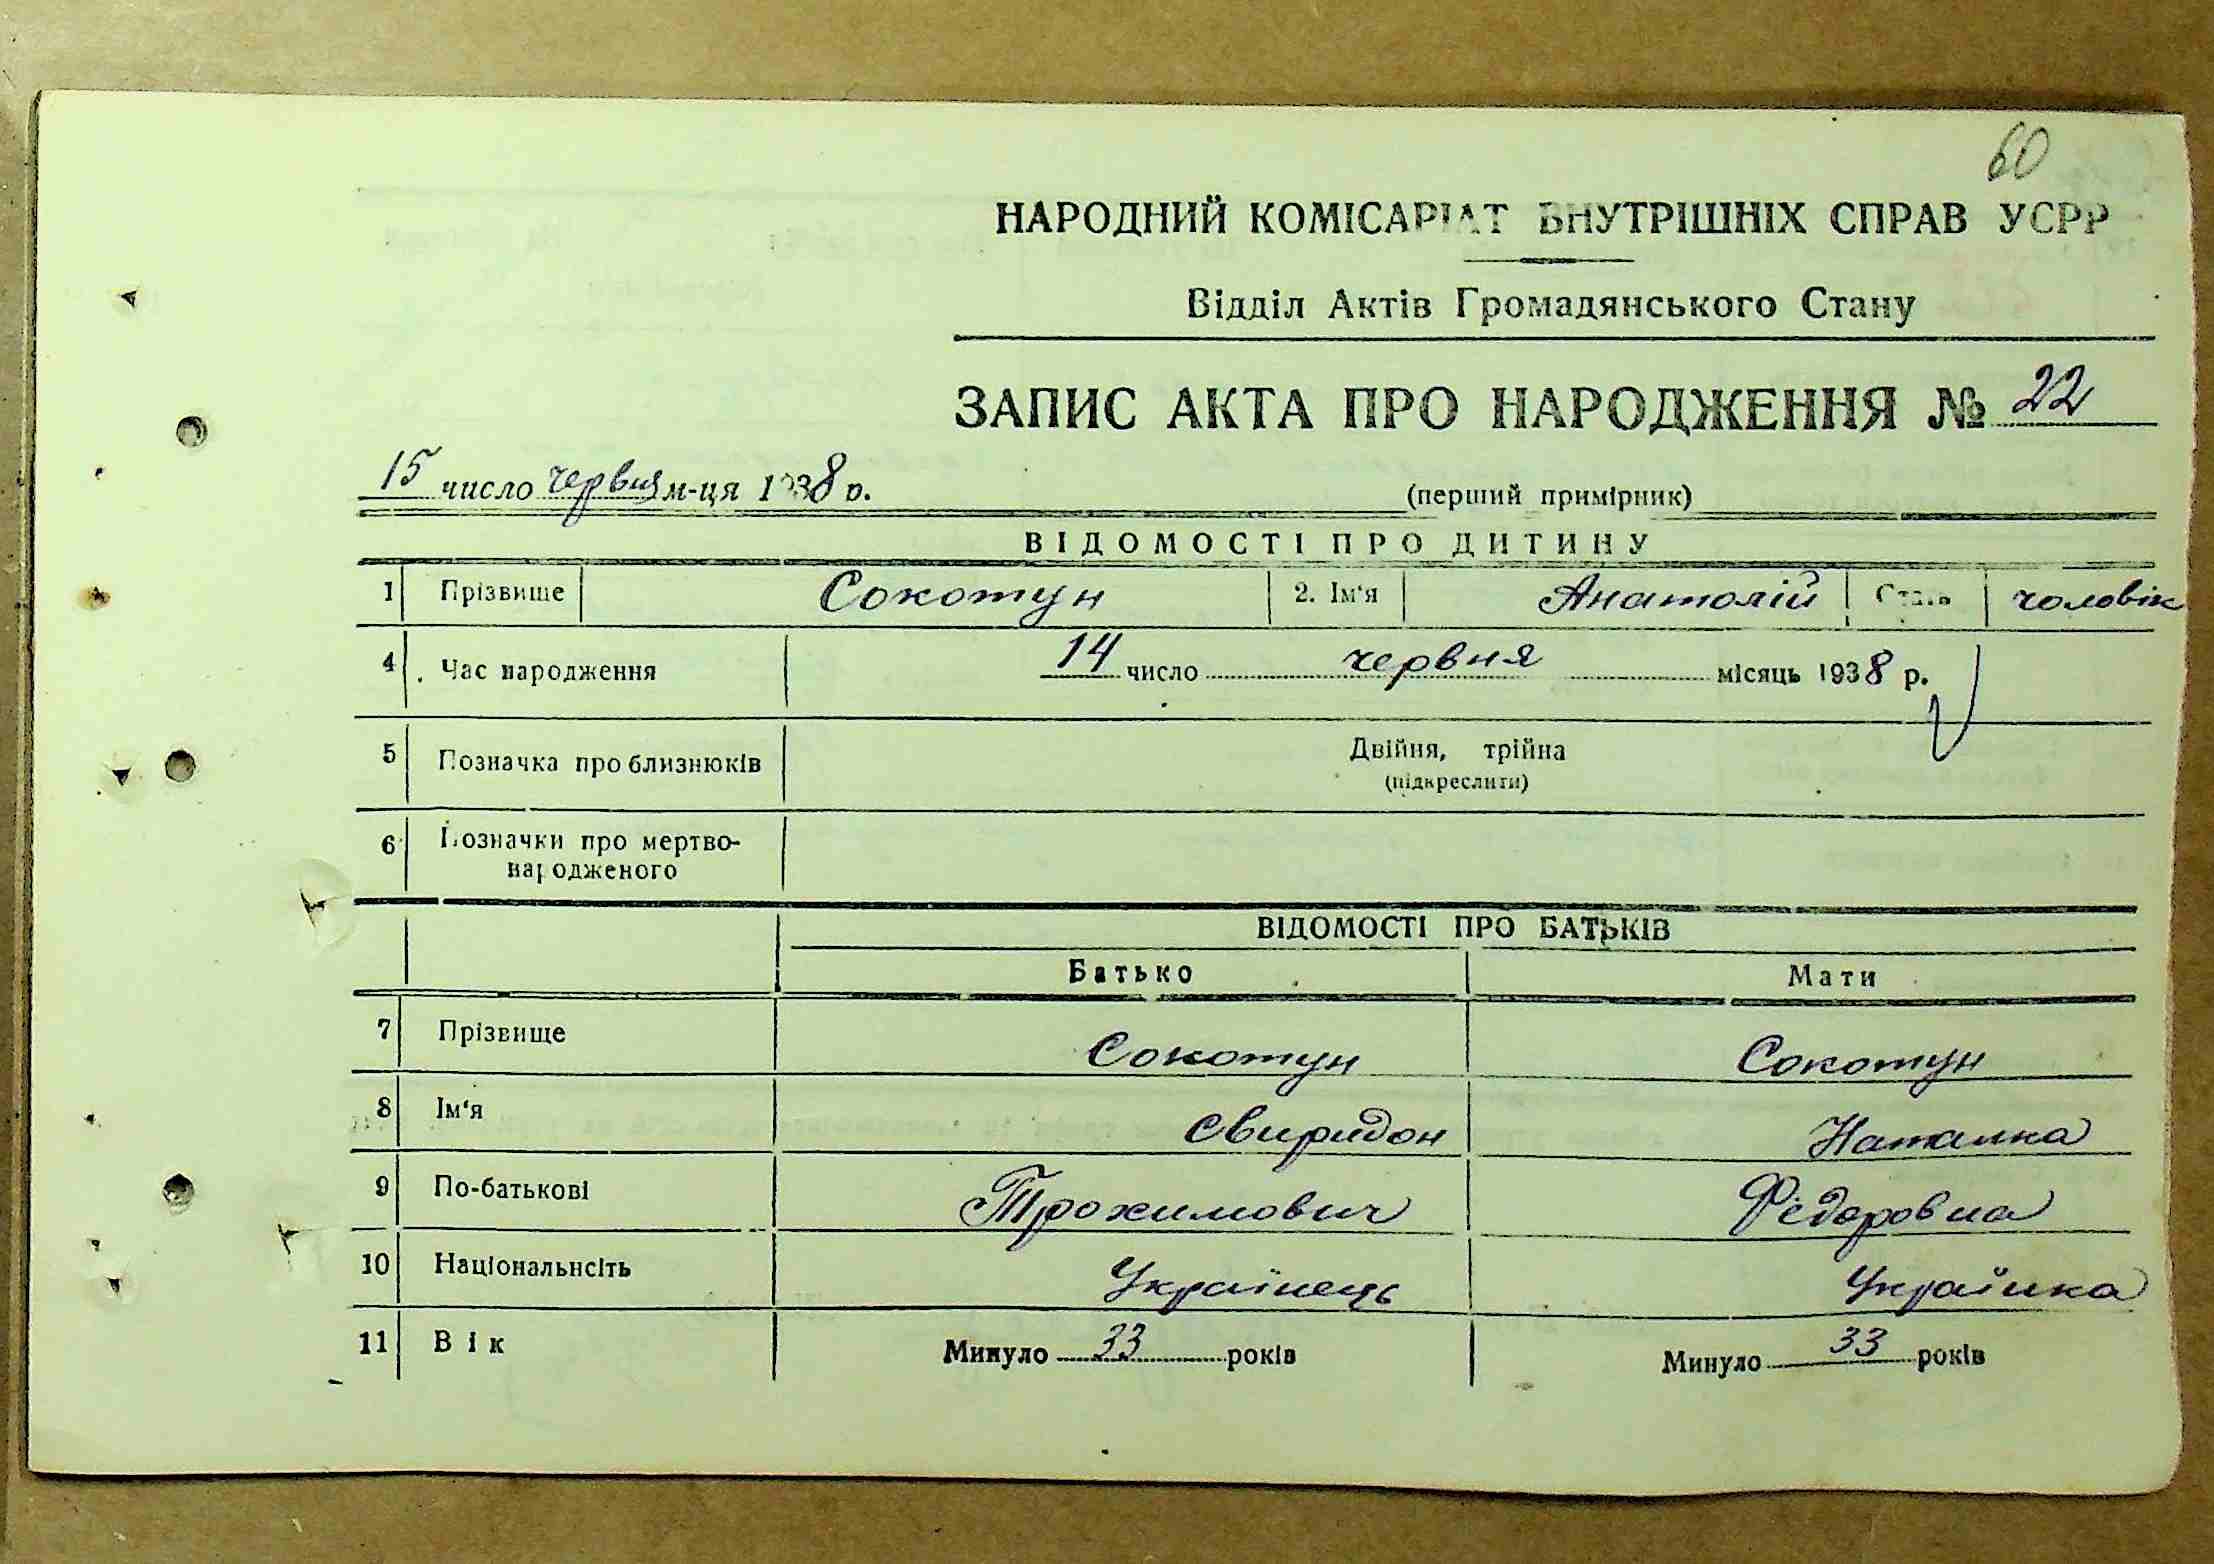 60
НАРОДНИЙ КОМІСАРІАТ ВНУТРІШНІХ СПРАВ УСРР
Відділ Актів Громадянського Стану
ЗАПИС АКТА ПРО НАРОДЖЕННЯ № 22
15 число червня м-ця 1938 р.
(перший примірник)
ВІДОМОСТІ ПРО ДИТИНУ
1 Прізвище Сокотун 2. Ім'я Анатолій Стать чоловік
4 Час народження 14 число червня місяць 1938 р.
5 Позначка про близнюків Двійня, трійна
(підкреслити)
6 Позначки про мертво-
народженого
ВІДОМОСТІ ПРО БАТЬКІВ
Батько Мати
7 Прізвище Сокотун Сокотун
8 Ім'я Свиридон Наталка
9 По-батькові Трохимович Фёдоровна
10 Національнсіть Українець Українка
11 Вік Минуло 33 років Минуло 33 років